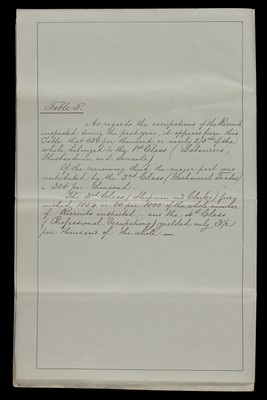 Table 5.
As regards the occupations of the Recruits
inspected during the past year, it appears from this
Table that 626 per thousand, or nearly 2/3rds of the
whole belonged to the 1st Class (Labourers,
Husbandmen and Servants)
Of the remaining third the major part was
contributed by the 2nd Class (Mechanical Trades)
306 per thousand.
The 3rd Class (Shopmen and Clerks) furnished
only
per 1000 of the whole number
of Recruits inspected and the 4th Class
(Professional Occupations) yielded only
per thousand of the whole —